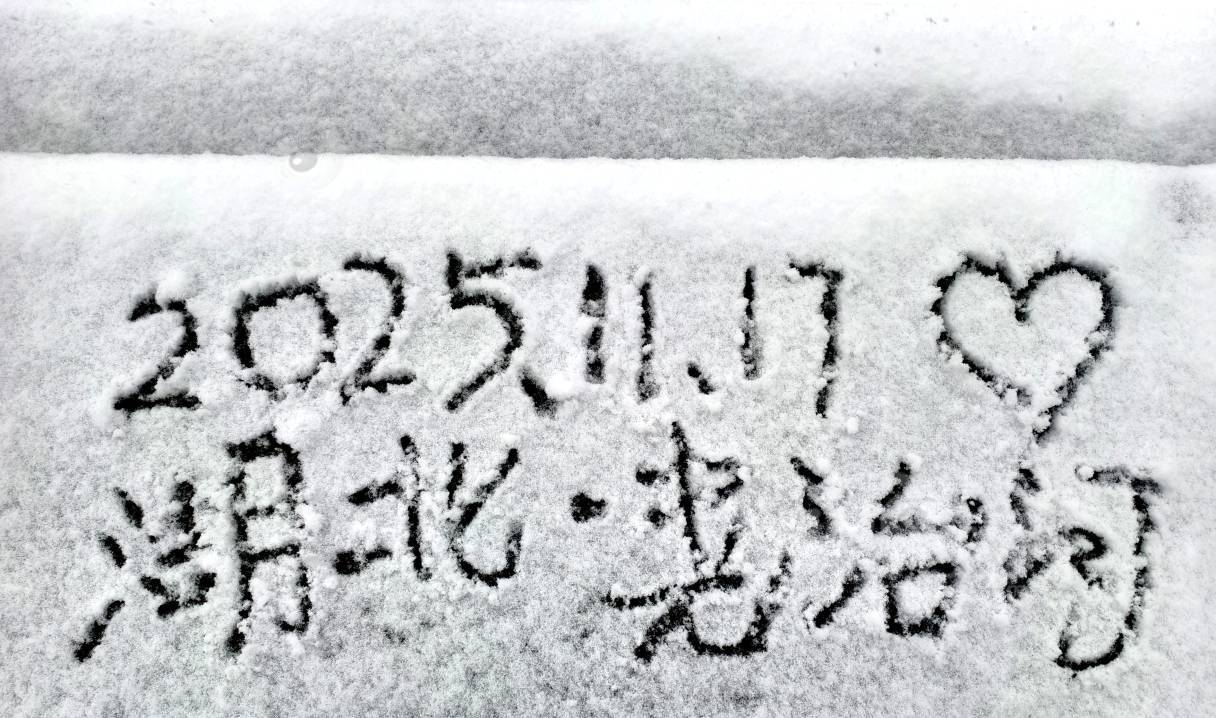 2025.11.17 ♡
湖北·尧治河